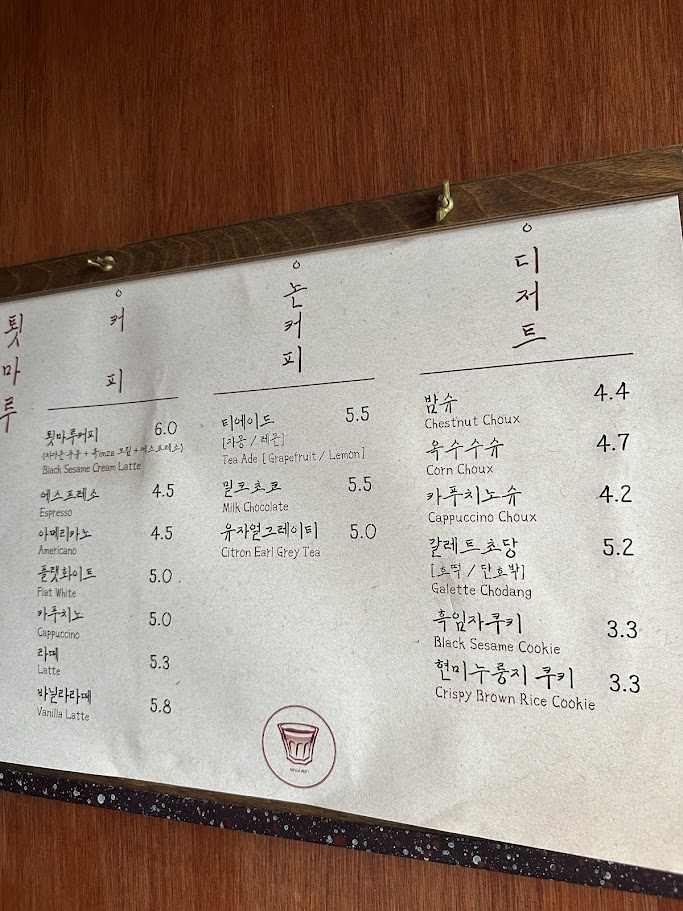 툇마루
커피
툇마루커피 6.0
Black Sesame Cream Latte
에스프레소 4.5
Espresso
아메리카노 4.5
Americano
플랫화이트 5.0
Flat White
카푸치노 5.0
Cappuccino
라떼 5.3
Latte
바닐라라떼 5.8
Vanilla Latte
논커피
티에이드 5.5
[자몽 / 레몬]
Tea Ade [Grapefruit / Lemon]
밀크초코 5.5
Milk Chocolate
유자얼그레이티 5.0
Citron Earl Grey Tea
디저트
밤슈 4.4
Chestnut Choux
옥수수슈 4.7
Corn Choux
카푸치노슈 4.2
Cappuccino Choux
갈레트 초당 5.2
[호떡 / 단호박]
Galette Chodang
흑임자쿠키 3.3
Black Sesame Cookie
현미누룽지 쿠키 3.3
Crispy Brown Rice Cookie